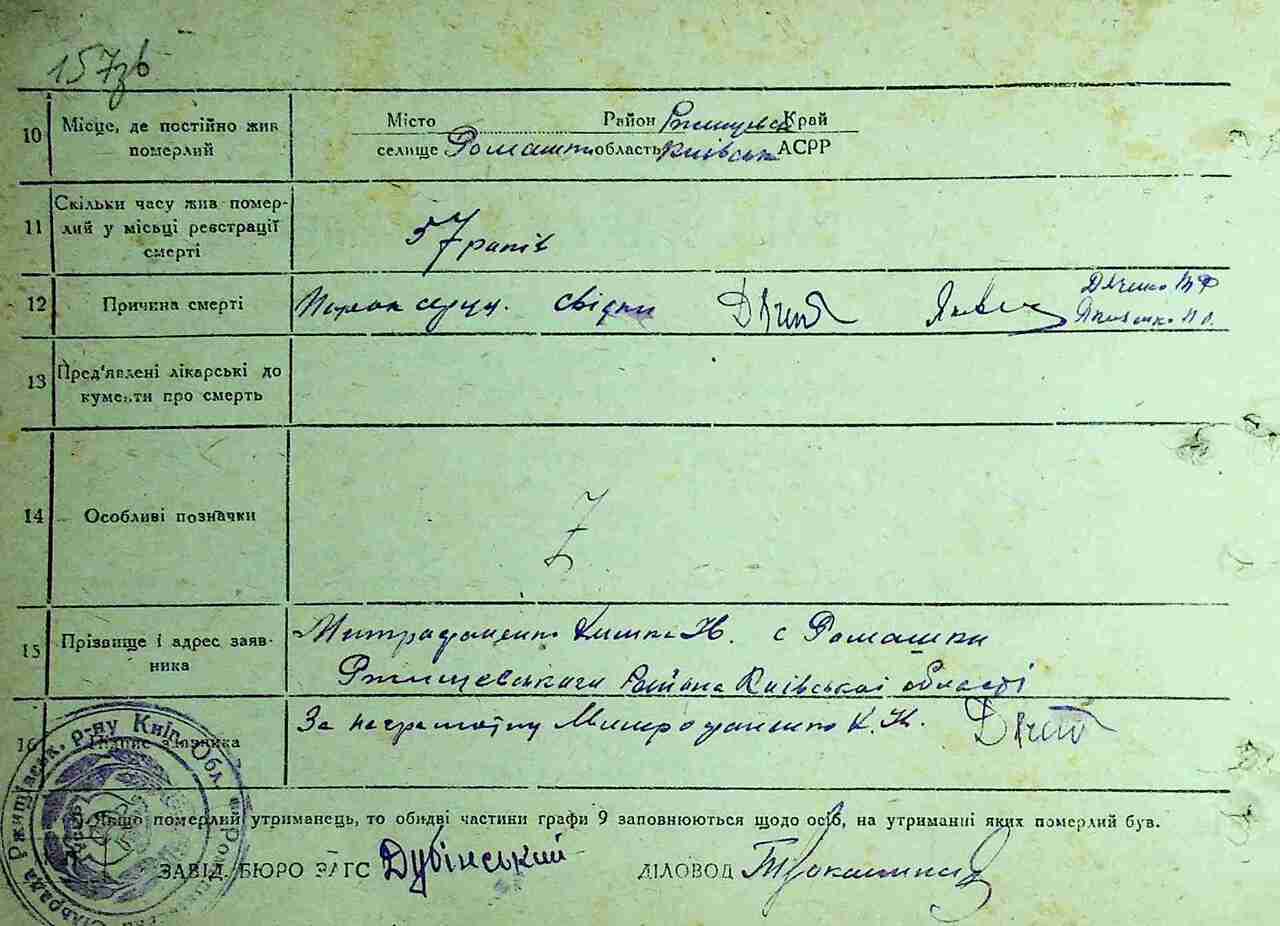 157зв
10 Місце, де постійно жив Місто Район Ржищевськ Край
померлий селище Ромашки область Київськ АСРР
Скільки часу жив помер-
11 лий у місьці реєстрації 57 рапів
смерті
12 Причина смерті Порок серця. свідки Дяченко В Ф
13 Пред'явлені лікарські до
кументи про смерть
14 Особливі позначки Z
15 Прізвище і адрес заяв- Митрафаненко Н. с Ромашки
ника Ржищевського Района Київської області
16 Підпис з'явника За неграмотну Митрофаненко К. Н.
Якщо померлий утриманець, то обидві частини графи 9 заповнюються щодо осіб, на утриманні яких померлий був.
ЗАВІД. БЮРО ЗАГС Дубінський ДІЛОВОД
Ржищівськ. р-ну Київ. Обл.